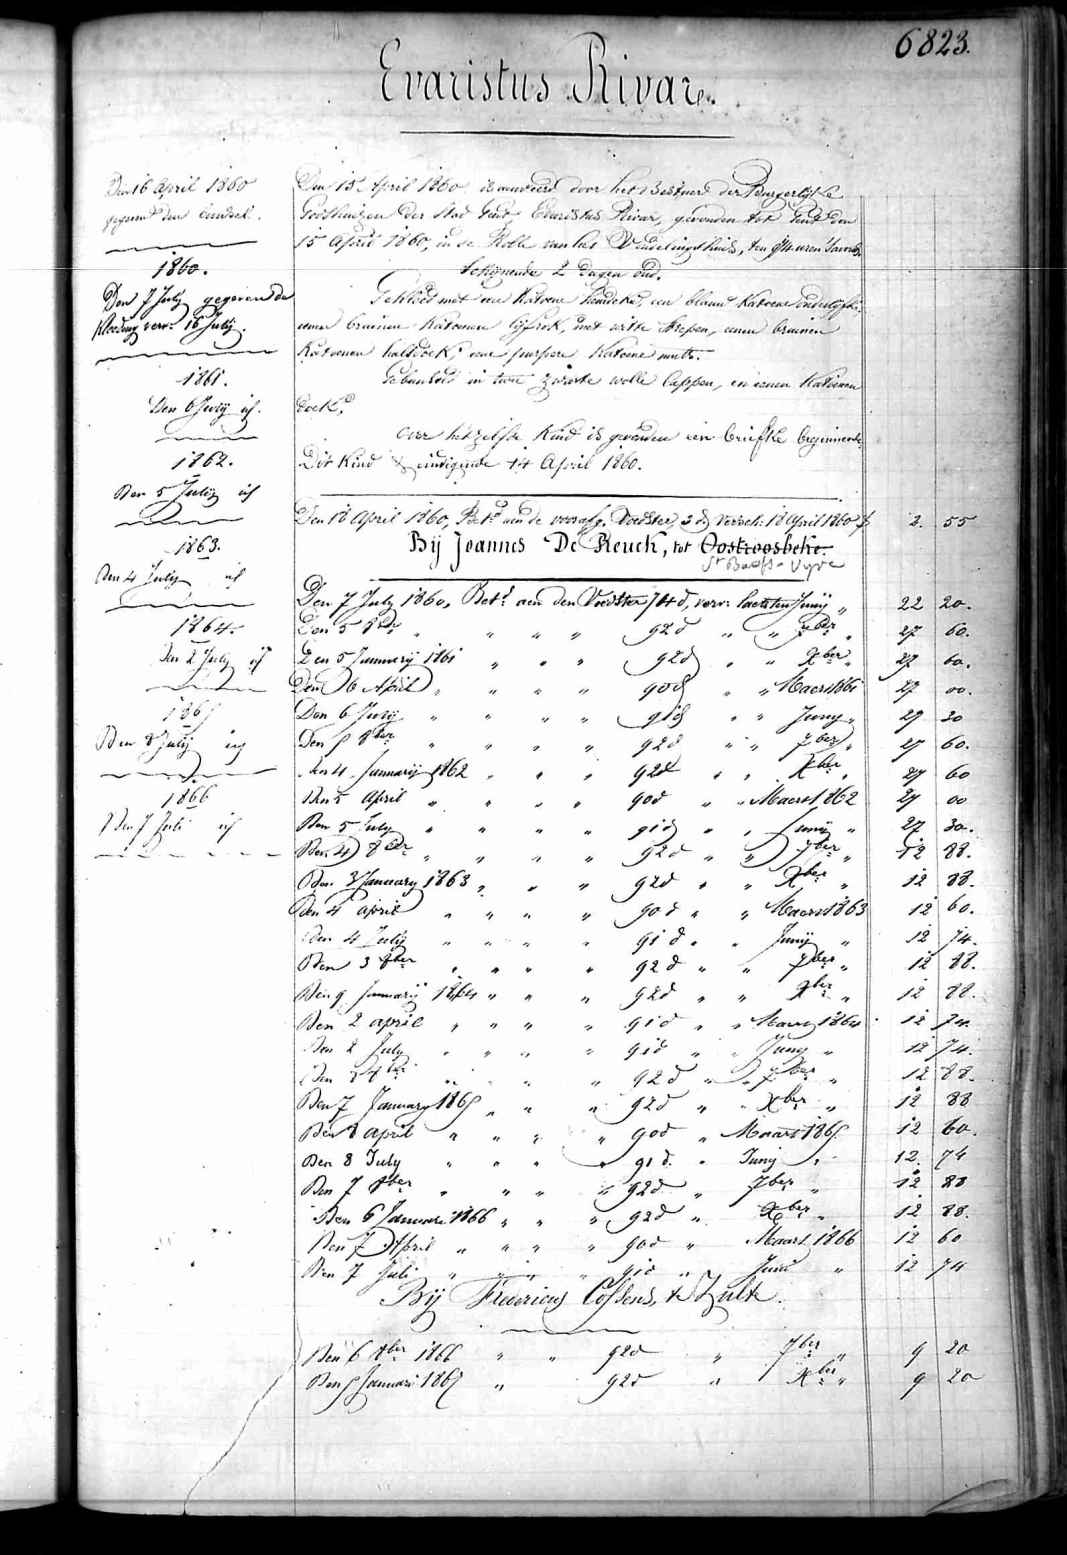 6823.
Evaristus Rivar.
Den 16 April 1860
gegeven den
1860.
Den 7 July gegeven de
kleeding verv. 16 July.
1861.
Den 6 July id.
1862.
Den 5 July id
1863.
Den 4 July id
1864.
Den 2 July id
1865
Den 8 July id
1866
Den 7 Juli id
Den 15 April 1860, is aenveerd door het Bestuer der Burgerlyke
Godshuizen der Stad Gent, Evaristus Rivar, gevonden tot Gent den
15 April 1860, in de Rolle van het Vondelingshuis, ten 9 1/4 uren 's avonds,
schynende 2 dagen oud.
Gekleed met een katoene hemdeke, een blauw katoene onderlyfke,
eenen bruinen katoenen lyfrok, met witte strepen, eenen bruinen
katoenen halsdoek, eene purpere katoene muts.
Gebunseld in twee zwarte wolle lappen, en eenen katoenen
doek.
Over hetzelfde Kind is gevonden een briefke beginnende
Dit Kind & eindigende 14 April 1860.
Den 18 April 1860, Bet.d aen de voorafg. Voedster 3 d verv. 18 April 1860 f 2. 55
Bij Joannes De Reuck, tot Oostroosbeke.
St Baefs-Vyve
Den 7 July 1860, Bet.d aen den Voedster 74 d, verv. laetsten Juny " 22 20.
Den 5 8ber " " " " 92 d " " 7ber " 27 60.
Den 5 January 1861 " " " 92 d " " Xber " 27 60.
Den 6 April " " " " 90 d " " Maers 1861 27 00.
Den 6 July " " " " 91 d " " Juny " 27 30
Den 5 8ber " " " " 92 d " " 7ber " 27 60.
Den 4 January 1862 " " " 92 d " " Xber " 27 60
Den 5 April " " " " 90 d " " Maers 1862 27 00
Den 5 July " " " " 91 d " " Juny " 27 30.
Den 4 8ber " " " " 92 d " " 7ber " 12 88.
Den 3 January 1863 " " " 92 d " " Xber " 12 88.
Den 4 april " " " " 90 d " " Maers 1863 12 60.
Den 4 July " " " " 91 d " " Juny " 12 74.
Den 3 8ber " " " " 92 d " " 7ber " 12 88.
Den 9 January 1864 " " " 92 d " " Xber " 12 88.
Den 2 april " " " " 91 d " " Maers 1864 12 74.
Den 2 July " " " " 91 d " " Juny " 12 74.
Den 8ber " " " " 92 d " " 7ber " 12 88.
Den 7 January 1865 " " " 92 d " " Xber " 12 88
Den 8 april " " " " 90 d " Maart 1865. 12 60.
Den 8 July " " " " 91 d. " Juny " 12. 74
Den 7 8ber " " " " 92 d " 7ber " 12 88
Den 6 Januari 1866 " " " 92 d " Xber " 12 88.
Den 7 April " " " " 90 d " Maart 1866 12 60
Den 7 Juli " " " " 91 d " Juni " 12 74
Bij Fredericus Cossens, t. Zulte.
Den 6 8ber 1866 " " 92 d " 7ber " 9 20
Den 5 Januari 1867 " 92 d " Xber " 9 20